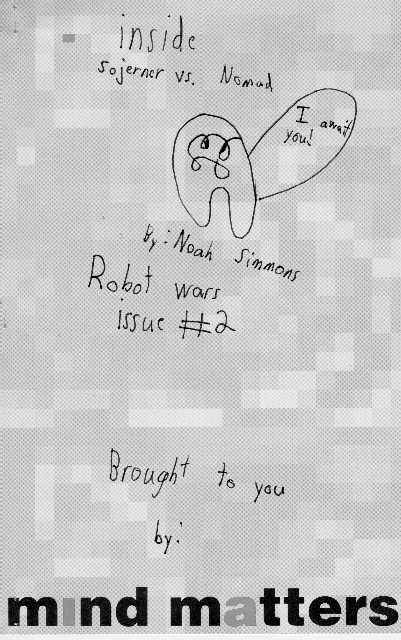 inside
Sojerner vs. Nomad
I await
you!
By: Noah Simmons
Robot wars
issue #2
Brought to you
by:
mind matters